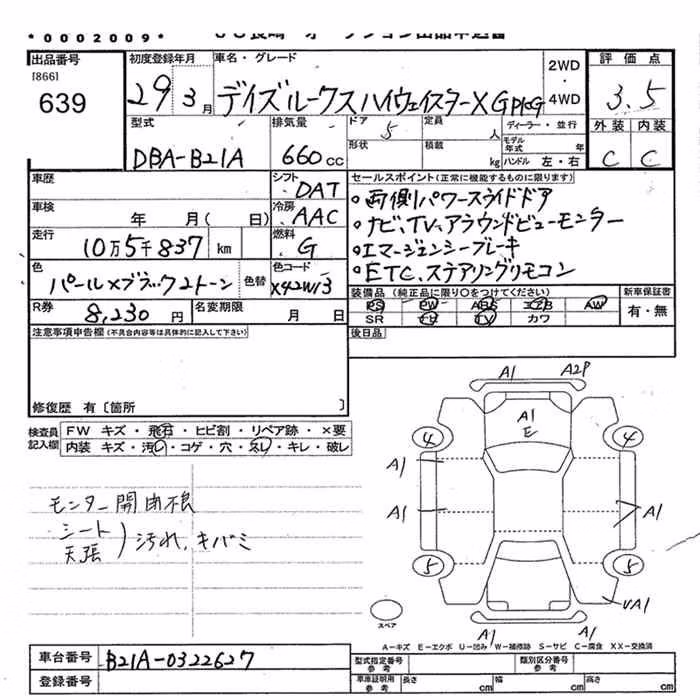 *0002009* JU長崎 オークション出品申込書
出品番号 [866] 639
初度登録年月 29年 3月
車名・グレード デイズルークスハイウェイスターX Gpkg
2WD・4WD
評価点 3.5
外装 C 内装 C
型式 DBA-B21A
排気量 660 cc
ドア 5 形状
定員 人 積載 kg
ディーラー・並行
モデル年式 年
ハンドル 左・右
車歴
シフト DAT
車検 年 月( 日)
冷房 AAC
走行 10万5千837 km
燃料 G
色 パール×ブラック2トーン 色替
色コード X42W13
R券 8,230円
名変期限 月 日
セールスポイント(正常に機能するものに限ります)
・両側パワースライドドア
・ナビ、TV、アラウンドビューモニター
・エマージェンシーブレーキ
・ETC、ステアリングリモコン
装備品(純正品に限り○をつけてください)
PS PW ABS エアB AW
SR ナビ TV カワ
新車保証書 有・無
後日品
注意事項申告欄(不具合内容等は具体的に記入して下さい)
修復歴 有〔箇所 〕
検査員記入欄
FW キズ・飛石・ヒビ割・リペア跡・×要
内装 キズ・汚れ・コゲ・穴・スレ・キレ・破レ
モニター開閉不良
シート
天張
)汚れ、キバミ
A1 A2P
A1
E
4 4
A1
A1 A1
5 5
UA1
A1 A1
スペア
A-キズ E-エクボ U-凹み W-補修跡 S-サビ C-腐食 XX-交換済
車台番号 B21A-0322627
登録番号
型式指定番号 参考
類別区分番号 参考
車庫証明用 参考
長さ cm 幅 cm 高さ cm